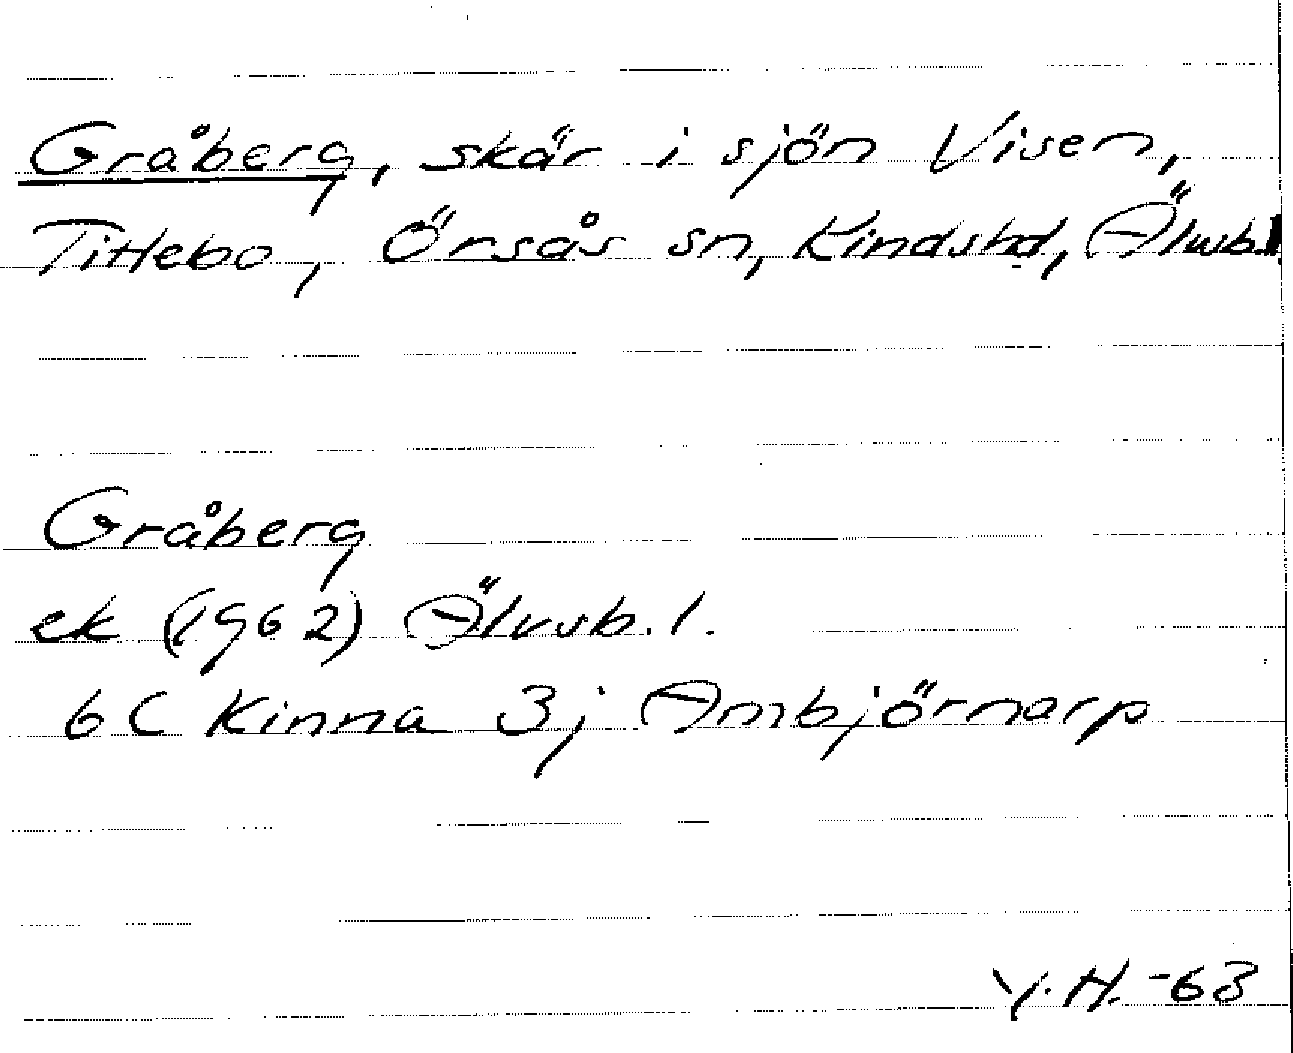 Gråberg, skär i sjön Visen,
Tittebo, Örsås sn, Kindshd, Älvsb.l
Gråberg
ek (1962) Älvsb.l.
6C Kinna 3j Ambjörnarp
Y.H.-63